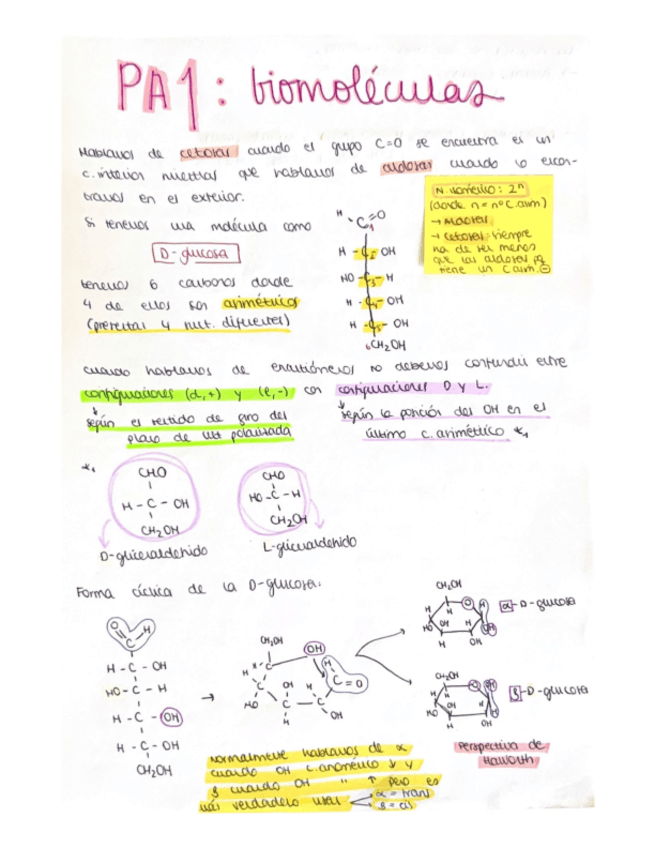 PA1: biomoléculas
Hablamos de cetosas cuando el grupo C=O se encuentra en un
c. interior mientras que hablamos de aldosas cuando lo encon-
tramos en el exterior.
N. isomérico: 2ⁿ
(donde n = nº C. asim)
→ Aldosas
→ Cetosas: siempre
ha de ser menos
que las aldosas pq
tiene un C asim. ⊖
Si tenemos una molécula como
D-glucosa
tenemos 6 carbonos donde
4 de ellos son asimétricos
(presentan 4 sust. diferentes)
H C=O
1
H - C2 - OH
HO - C3 - H
H - C4 - OH
H - C5 - OH
6CH₂OH
cuando hablamos de enantiómeros no debemos confundir entre
configuraciones (d,+) y (l,-) con configuraciones D y L.
según el sentido de giro del
plano de luz polarizada
según la posición del OH en el
último c. asimétrico *₁
*₁
CHO
H - C - OH
CH₂OH
D-gliceraldehido
CHO
HO - C - H
CH₂OH
L-gliceraldehido
Forma cíclica de la D-glucosa:
O C H
H - C - OH
HO - C - H
H - C - OH
H - C - OH
CH₂OH
→
CH₂OH
OH
H C
H
C=O
C OH H C
HO C C
H OH
CH₂OH
H O H
H
HO OH H OH
H OH
α-D-glucosa
CH₂OH
H O OH
H
HO OH H H
H OH
β-D-glucosa
Perspectiva de
Haworth
normalmente hablamos de α
cuando OH C. anomérico ↓ y
β cuando OH " ↑ pero es
más verdadero usar
α = trans
β = cis